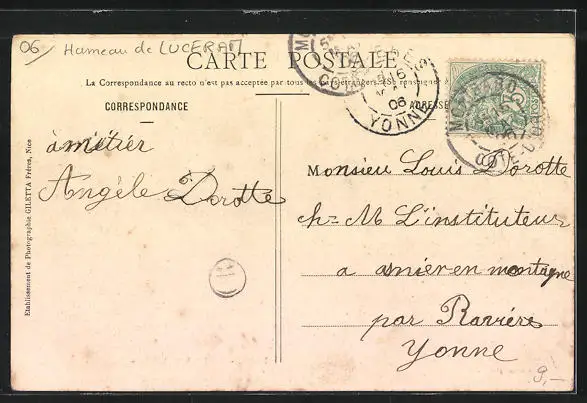 06/ Hameau de LUCERAM
CARTE POSTALE
La Correspondance au recto n'est pas acceptée par tous les pays étrangers. (Se renseigner à
CORRESPONDANCE
ADRESSE
amitier
Angèle Dorotte
Monsieur Louis Dorotte
ch= M L'instituteur
a asnier en montagne
par Ravières
Yonne
15
06
YONNE
Etablissement de Photographie GILETTA Frères, Nice
9,-